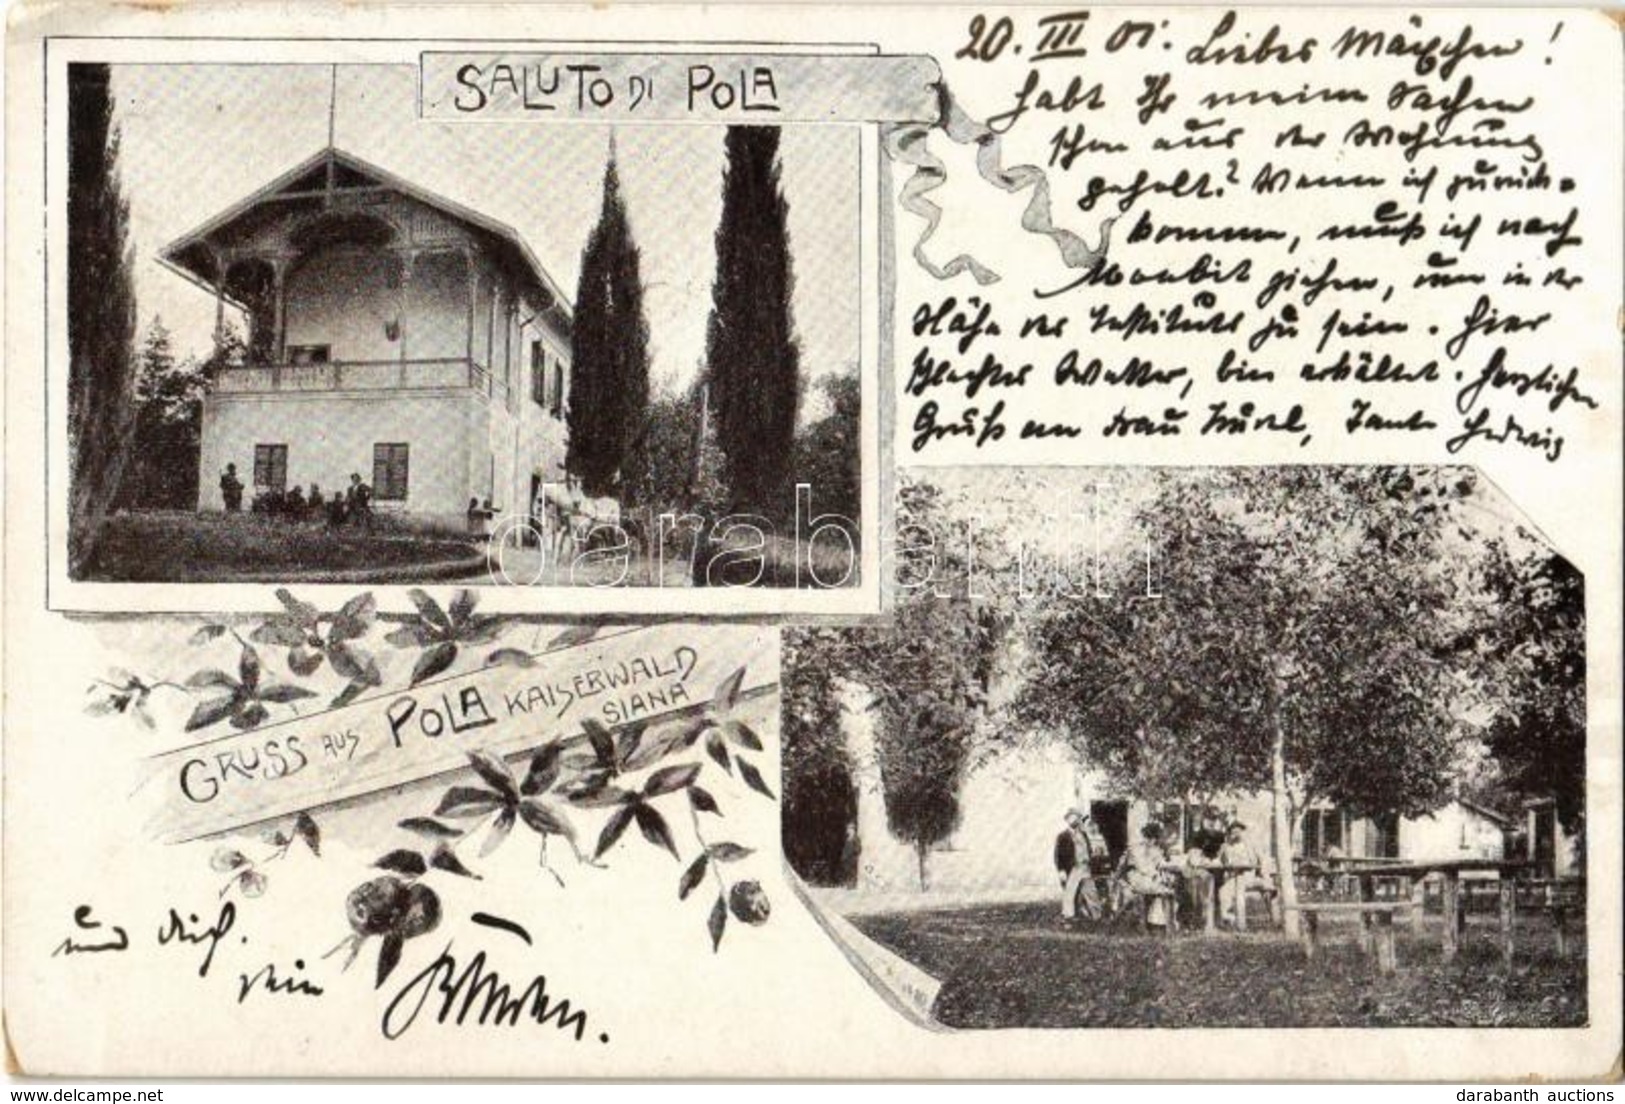 SALUTO DI POLA
20. III 01. Liebes Mäuschen!
habt Ihr meine Sachen
schon aus der Wohnung
geholt? Wenn ich zurück-
komme, muß ich nach
Moabit ziehen, um in der
Nähe des Instituts zu sein. Hier
schlechtes Wetter, bin erkältet. Herzlichen
Gruß an Frau Turel, Tante Hedwig
GRUSS AUS POLA KAISERWALD
SIANA
und dich.
Dein
darabanth
darabanth auctions